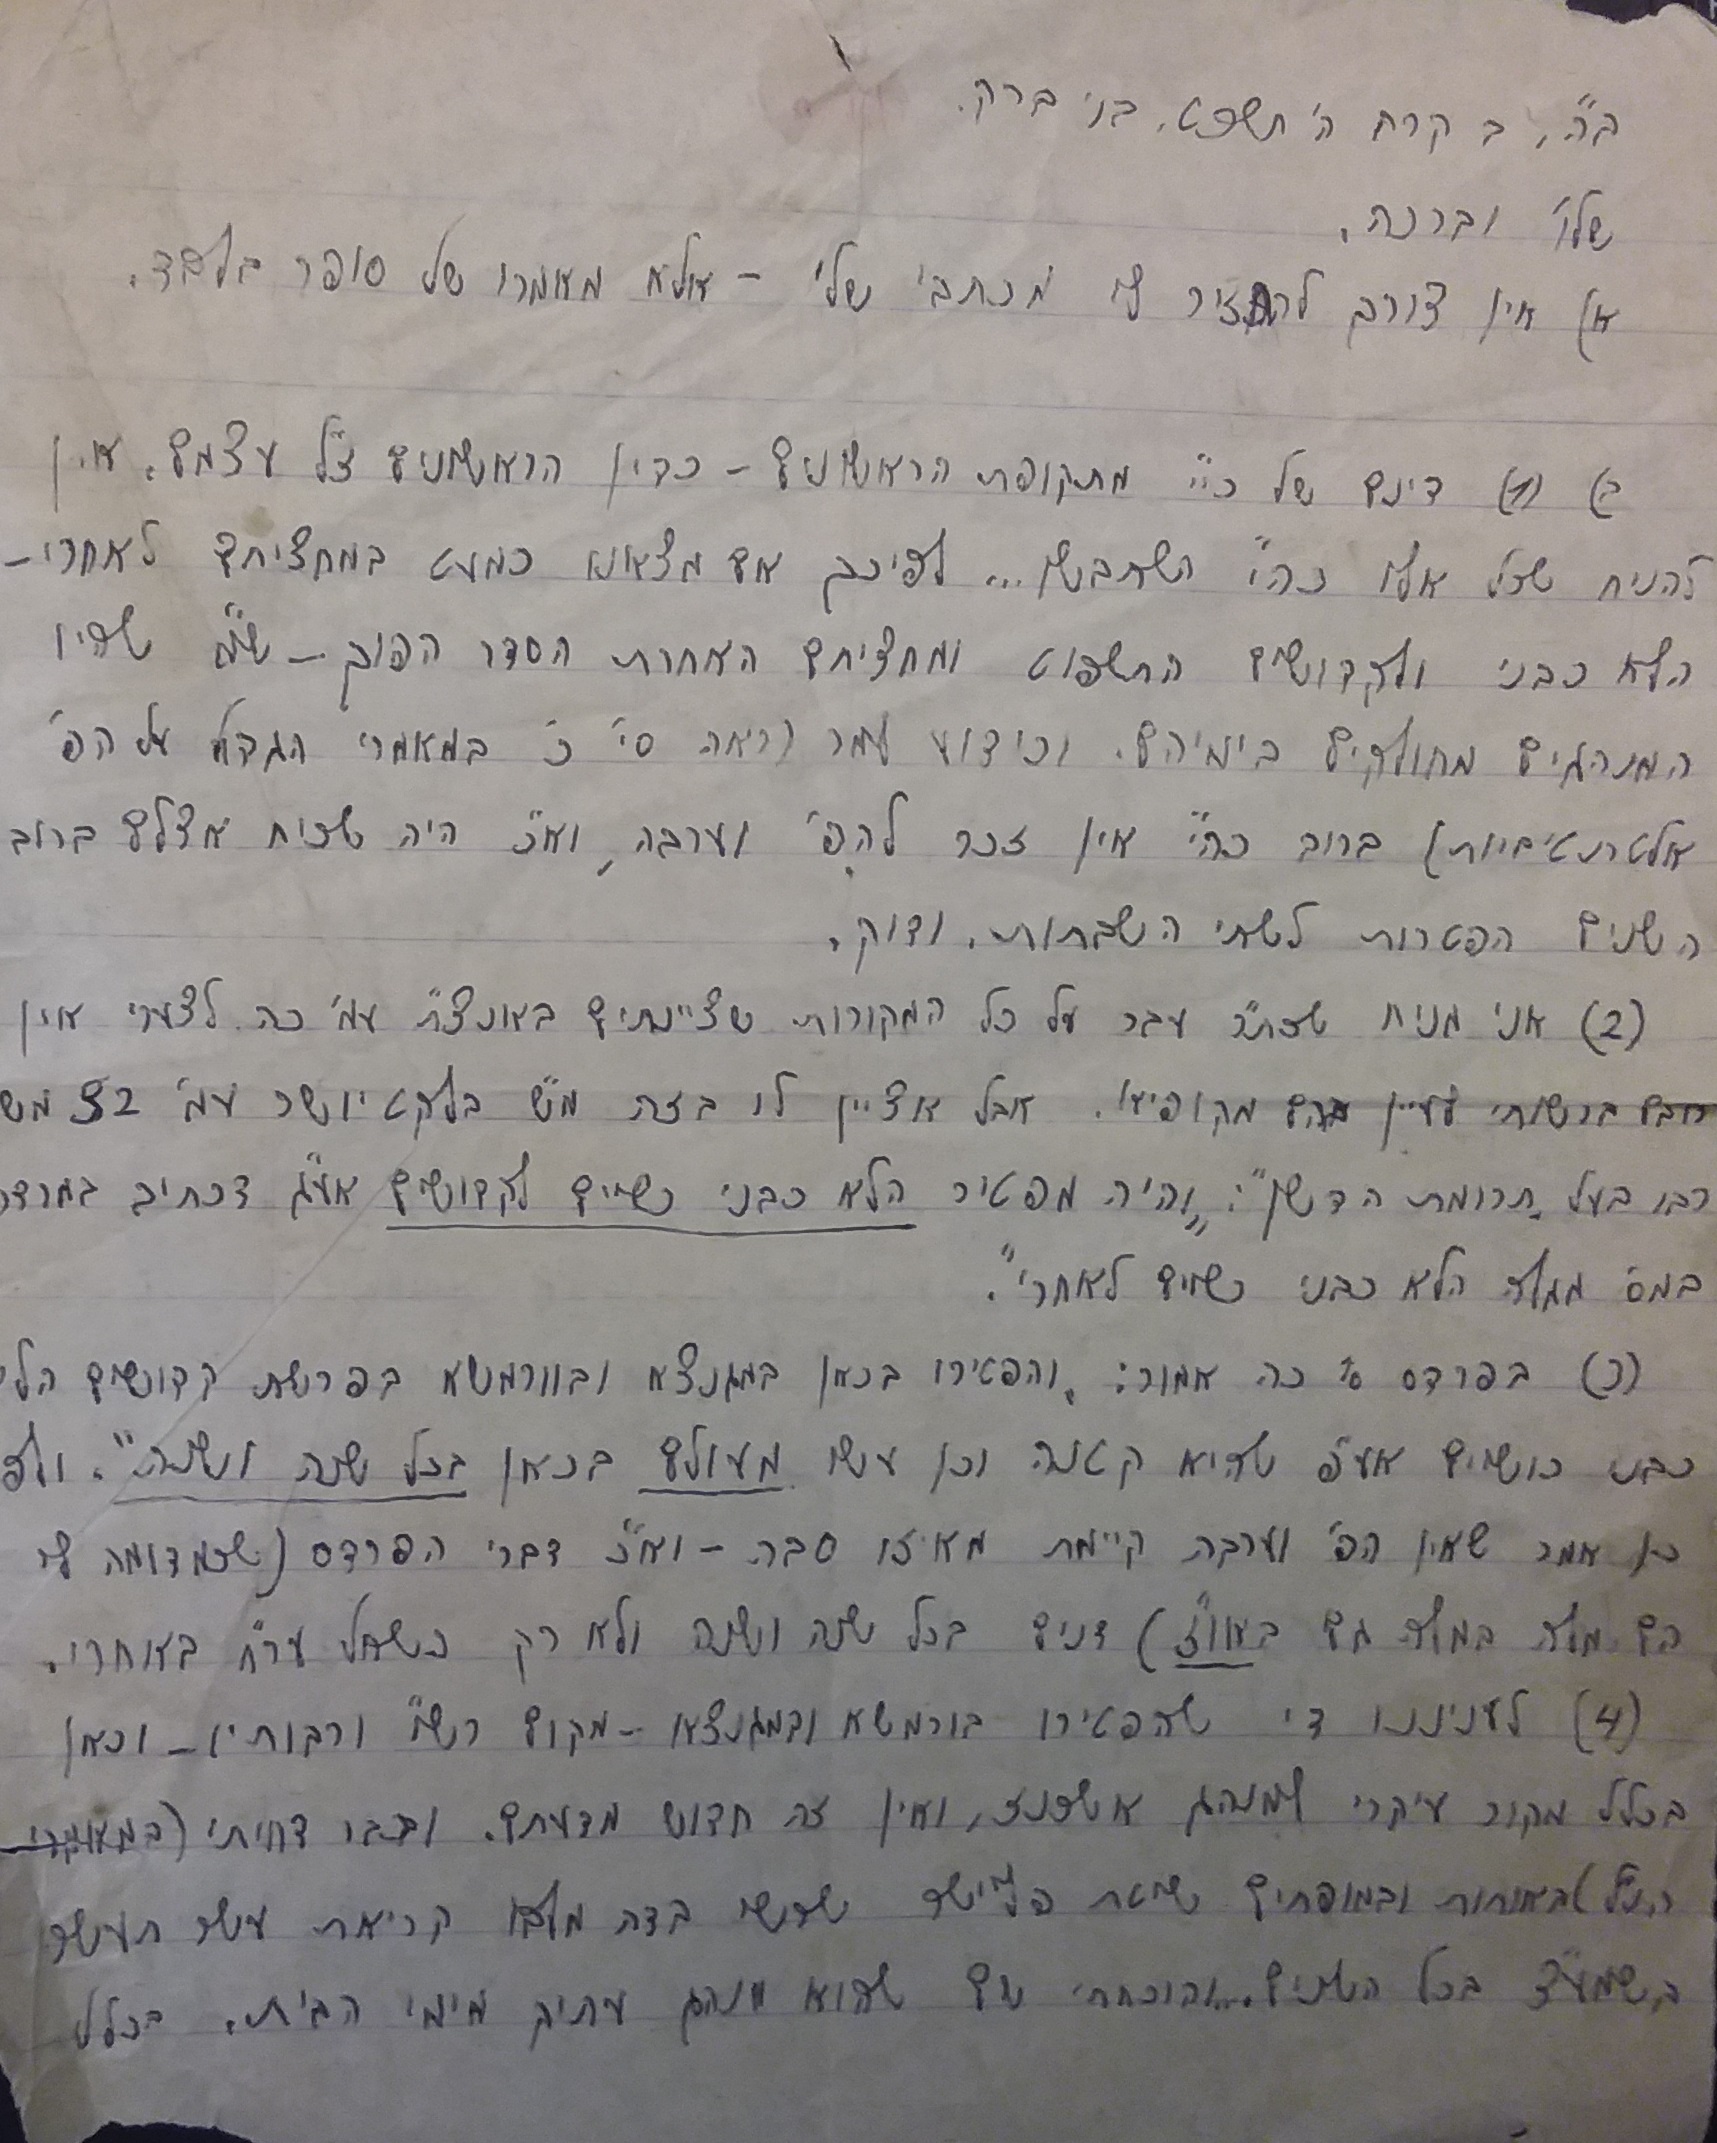 ב"ה, ב קרח ה' תשפט, בני ברק.
שלו' וברכה,
א) אין צורך להחזיר לי מכתבי שלי – אלא מאמרו של סופר בלבד.
ב) (1) דינם של כ"י מתקופת הראשונים – כדין הראשונים ז"ל עצמם. אין
להניח שכל אלו כה"י השתבשו... לפיכך אם מצאנו כמעט במחציתם לאחרי –
הלא כבני ולקדושים התשפוט ומחציתם האחרת הסדר הפוך – ש"מ שהיו
המנהגים מחולקים בימיהם. וכידוע למר (ראה סי' כ' במאמרי הגדול על הפ'
אלטרנטיביות) ברוב כה"י אין זכר להפ' וערבה, וא"כ היה שכיח אצלם ברוב
השנים הפטרות לשתי השבתות. ודוק.
(2) אני מניח שכת"ר עבר על כל המקורות שציינתים באוצ"ת עמ' כה. לצערי אין
ברשותי לעיין בהם מקופיא. אבל אציין לו בזה מ"ש בלקט יושר עמ' 32
רבו בעל "תרומת הדשן": "והיה מפטיר הלא כבני כשיים לקדושים אע"ג דכתיב במרדכי
במס' מגלה הלא כבני כשיים לאחרי".
(3) בפרדס סי' כה אמור: "והפטירו בכאן במגנצא ובוורמשא בפרשת קדושים הלי
כבני כושיים אע"פ שהיא קטנה וכן עשו מעולם בכאן בכל שנה ושנה".
כן אמר שאין הפ' וערבה קיימת מאיזו סבה – וא"כ דברי הפרדס (שכמדומה לי
הם מלה במלה גם באו"ז) דנים בכל שנה ושנה ולא רק כשחל ער"ח באחרי.
(4) לעניננו די שהפטירו בורמשא ובמגנצא – מקום רש"י ורבותיו – וכאן
בכלל מקור עיקרי למנהג אשכנז, ואין זה חדוש מדעתם. וכבר דחיתי (במאמרי
הנ"ל) באותות ובמופתים שיטת פליישר שרש"י בדה מלבו קריאת עשר תעשר
בשמע"צ בכל השנים... והוכחתי שם שהוא מנהג עתיק מימי הבית. בכלל